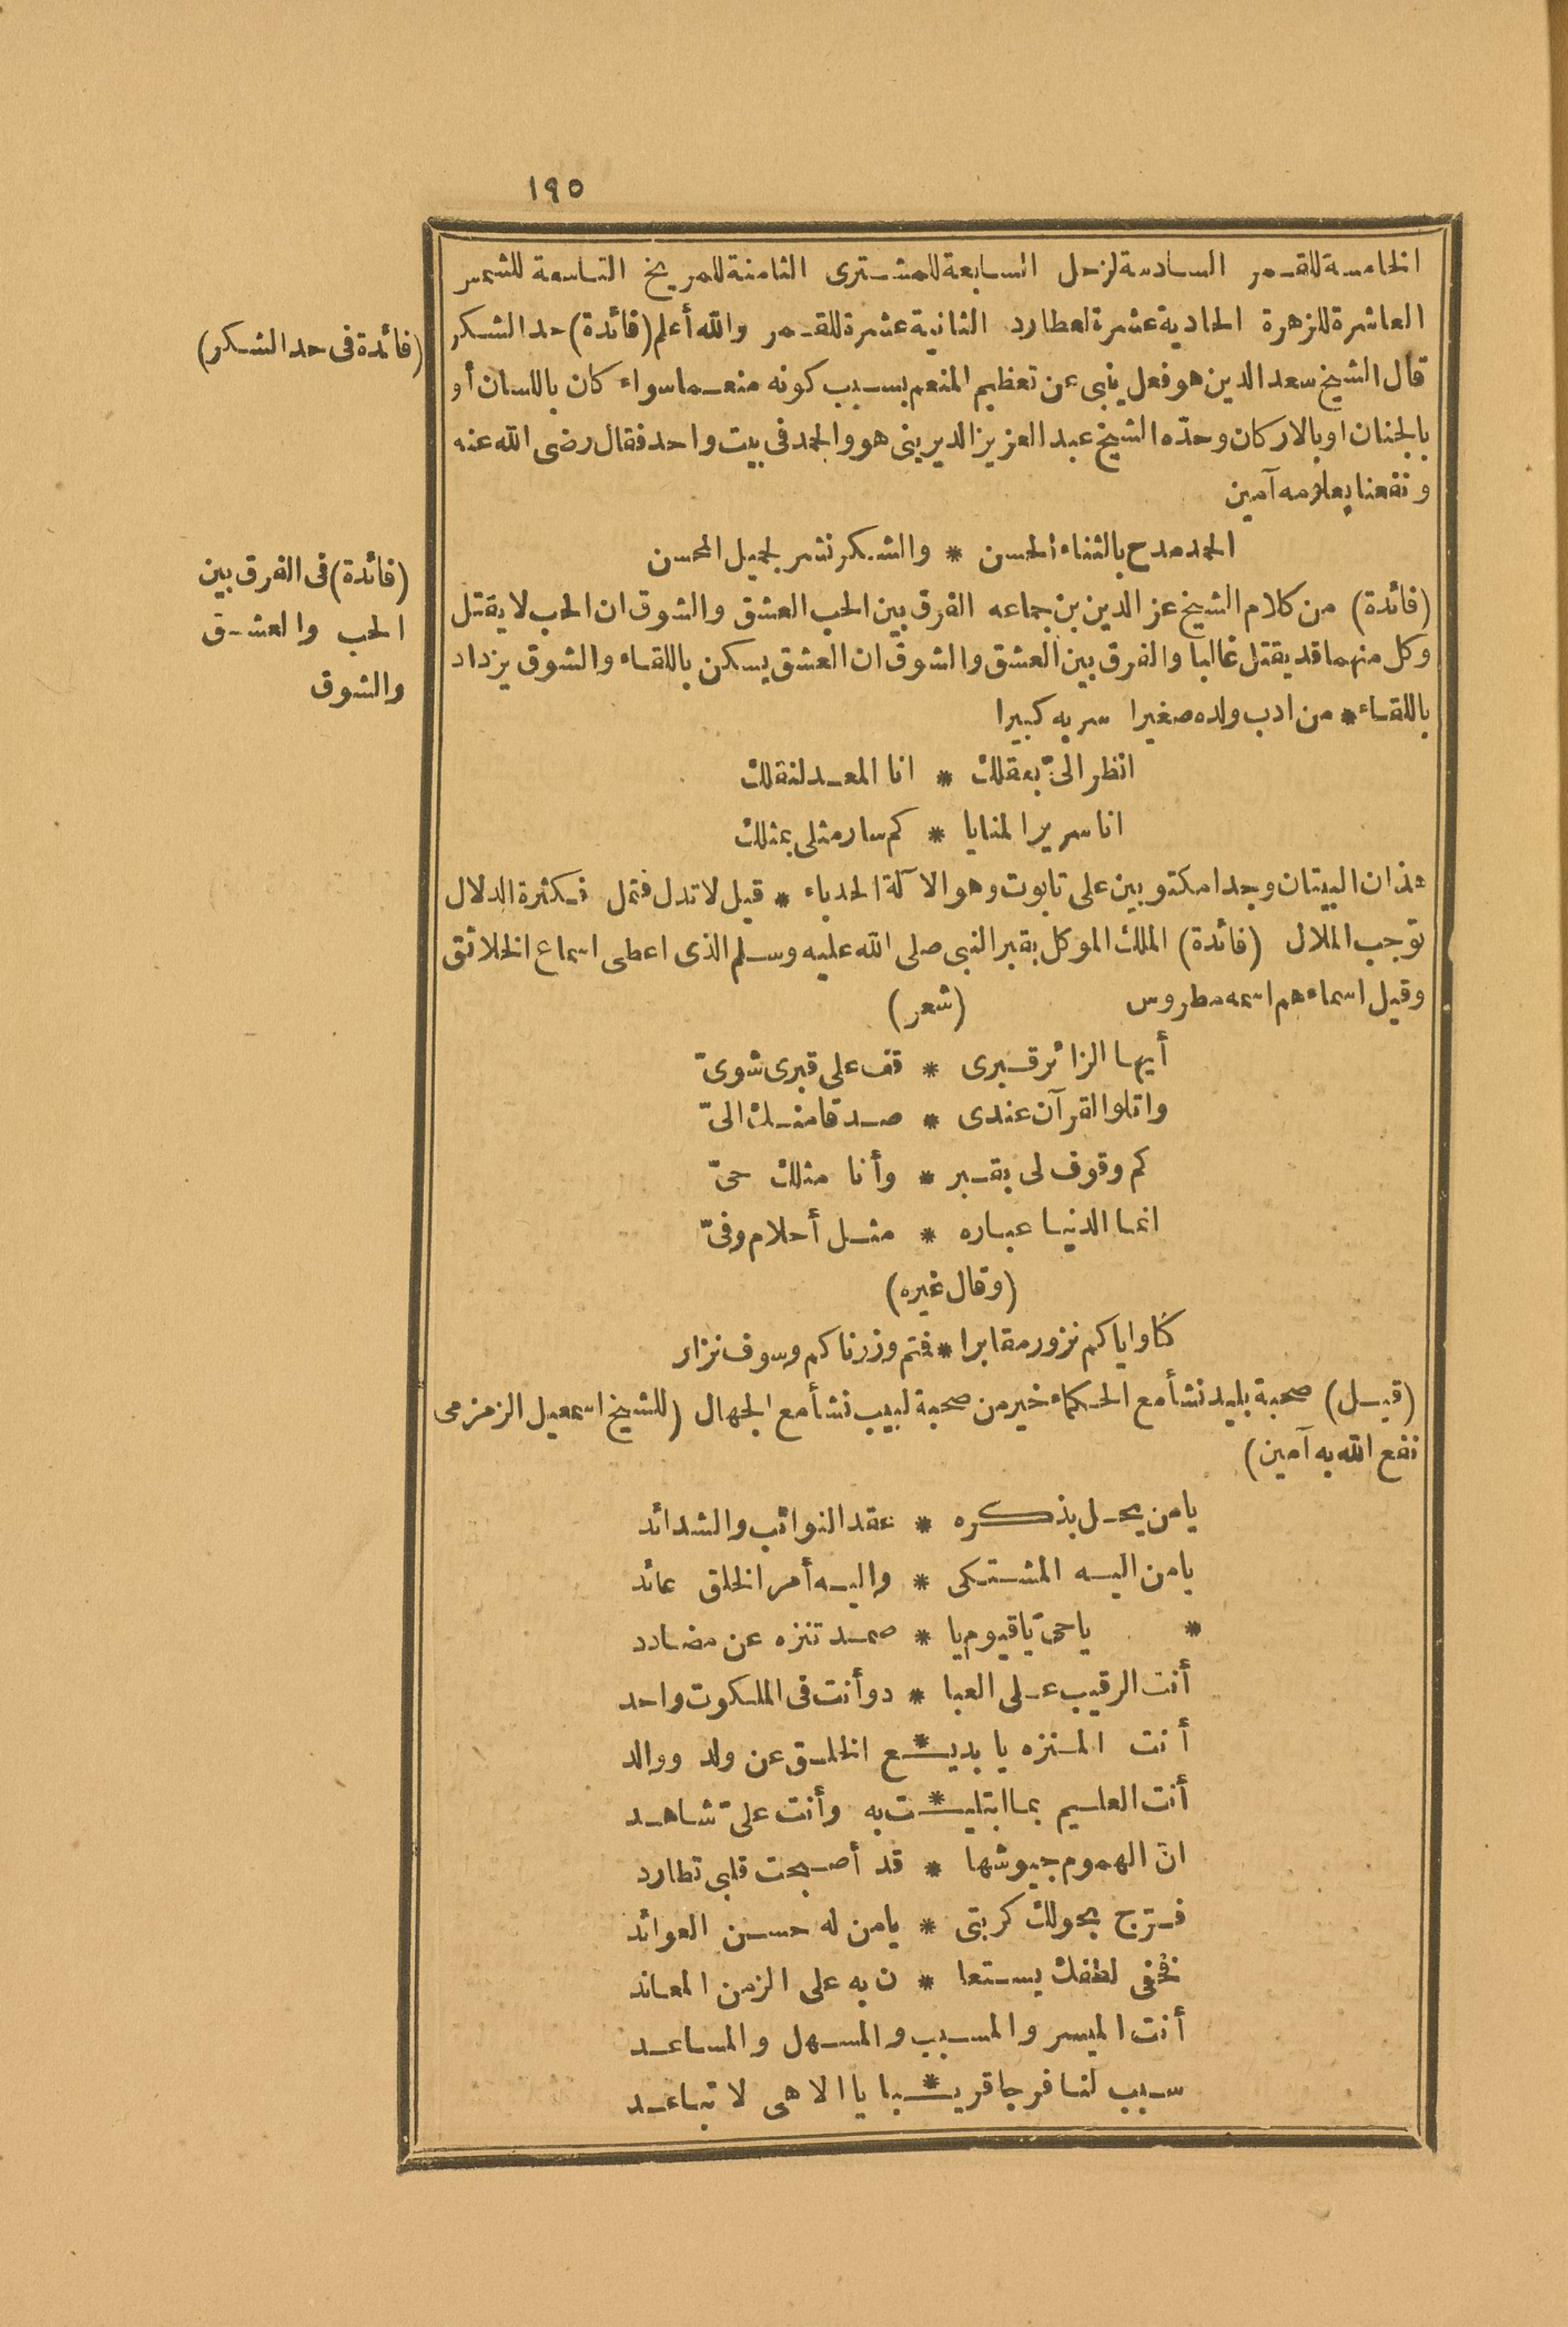 ١٩٥
الخامسة للقمر السادسة لزحل السابعة للمشترى الثامنة للمريخ التاسعة للشمس
العاشرة للزهرة الحادية عشرة لعطارد الثانية عشرة للقمر والله أعلم (فائدة) حد الشكر
(فائدة فى حد الشكر)
قال الشيخ سعد الدين هو فعل ينبى عن تعظيم المنعم بسبب كونه منعما سواء كان باللسان أو
بالجنان او بالاركان وحدّه الشيخ عبد العزيز الديرينى هو والحمد فى بيت واحد فقال رضى الله عنه
ونفعنا بعلومه آمين
الحمد مدح بالثناء الحسن * والشكر نشر لجميل المحسن
(فائدة) من كلام الشيخ عز الدين بن جماعه الفرق بين الحب العشق والشوق ان الحب لا يقتل
(فائدة) فى الفرق بين
الحب والعشق
والشوق
وكل منهما قد يقتل غالبا والفرق بين العشق والشوق ان العشق يسكن باللقاء والشوق يزداد
باللقاء * من ادب ولده صغيرا سر به كبيرا
انظر الىّ بعقلك * انا المعد لنقلك
انا سرير المنايا * كم سار مثلى بمثلك
هذان البيتان وجدا مكتوبين على تابوت وهو الآلة الحدباء * قيل لا تدل فتمل فكثرة الدلال
توجب الملال (فائدة) الملك الموكل بقبر النبى صلى الله عليه وسلم الذى اعطى اسماع الخلائق
وقيل اسماءهم اسمه مطروس (شعر)
أيها الزائر قبرى * قف على قبرى شوىّ
واتلو القرآن عندى * صدقا منك الىّ
كم وقوف لى بقبر * وأنا مثلك حىّ
انما الدنيا عباره * مثل أحلام وفىّ
(وقال غيره)
كنا واياكم نزور مقابرا * فتم وزرناكم وسوف نزار
(قيل) صحبة بليد نشأ مع الحكماء خير من صحبة لبيب نشأ مع الجهال (للشيخ اسمعيل الزمزمى
نفع الله به آمين)
يا من يحل بذكره * عقد النوائب والشدائد
يا من اليه المشتكى * واليه أمر الخلق عائد
* يا حىّ يا قيوم يا * صمد تنزه عن مضادد
أنت الرقيب على العبا * د وأنت فى الملكوت واحد
أنت المنزه يا بديع * الخلق عن ولد ووالد
أنت العليم بما ابتليـ * ـت به وأنت علىّ شاهد
ان الهموم جيوشها * قد أصبحت قلبى تطارد
فرّج بحولك كربتى * يا من له حسن العوائد
فخفى لطفك يستعا * ن به على الزمن المعاند
أنت الميسر والمسبب والمسهل والمساعد
سبب لنا فرجا قريـ * ـبا يا الاهى لا تباعد